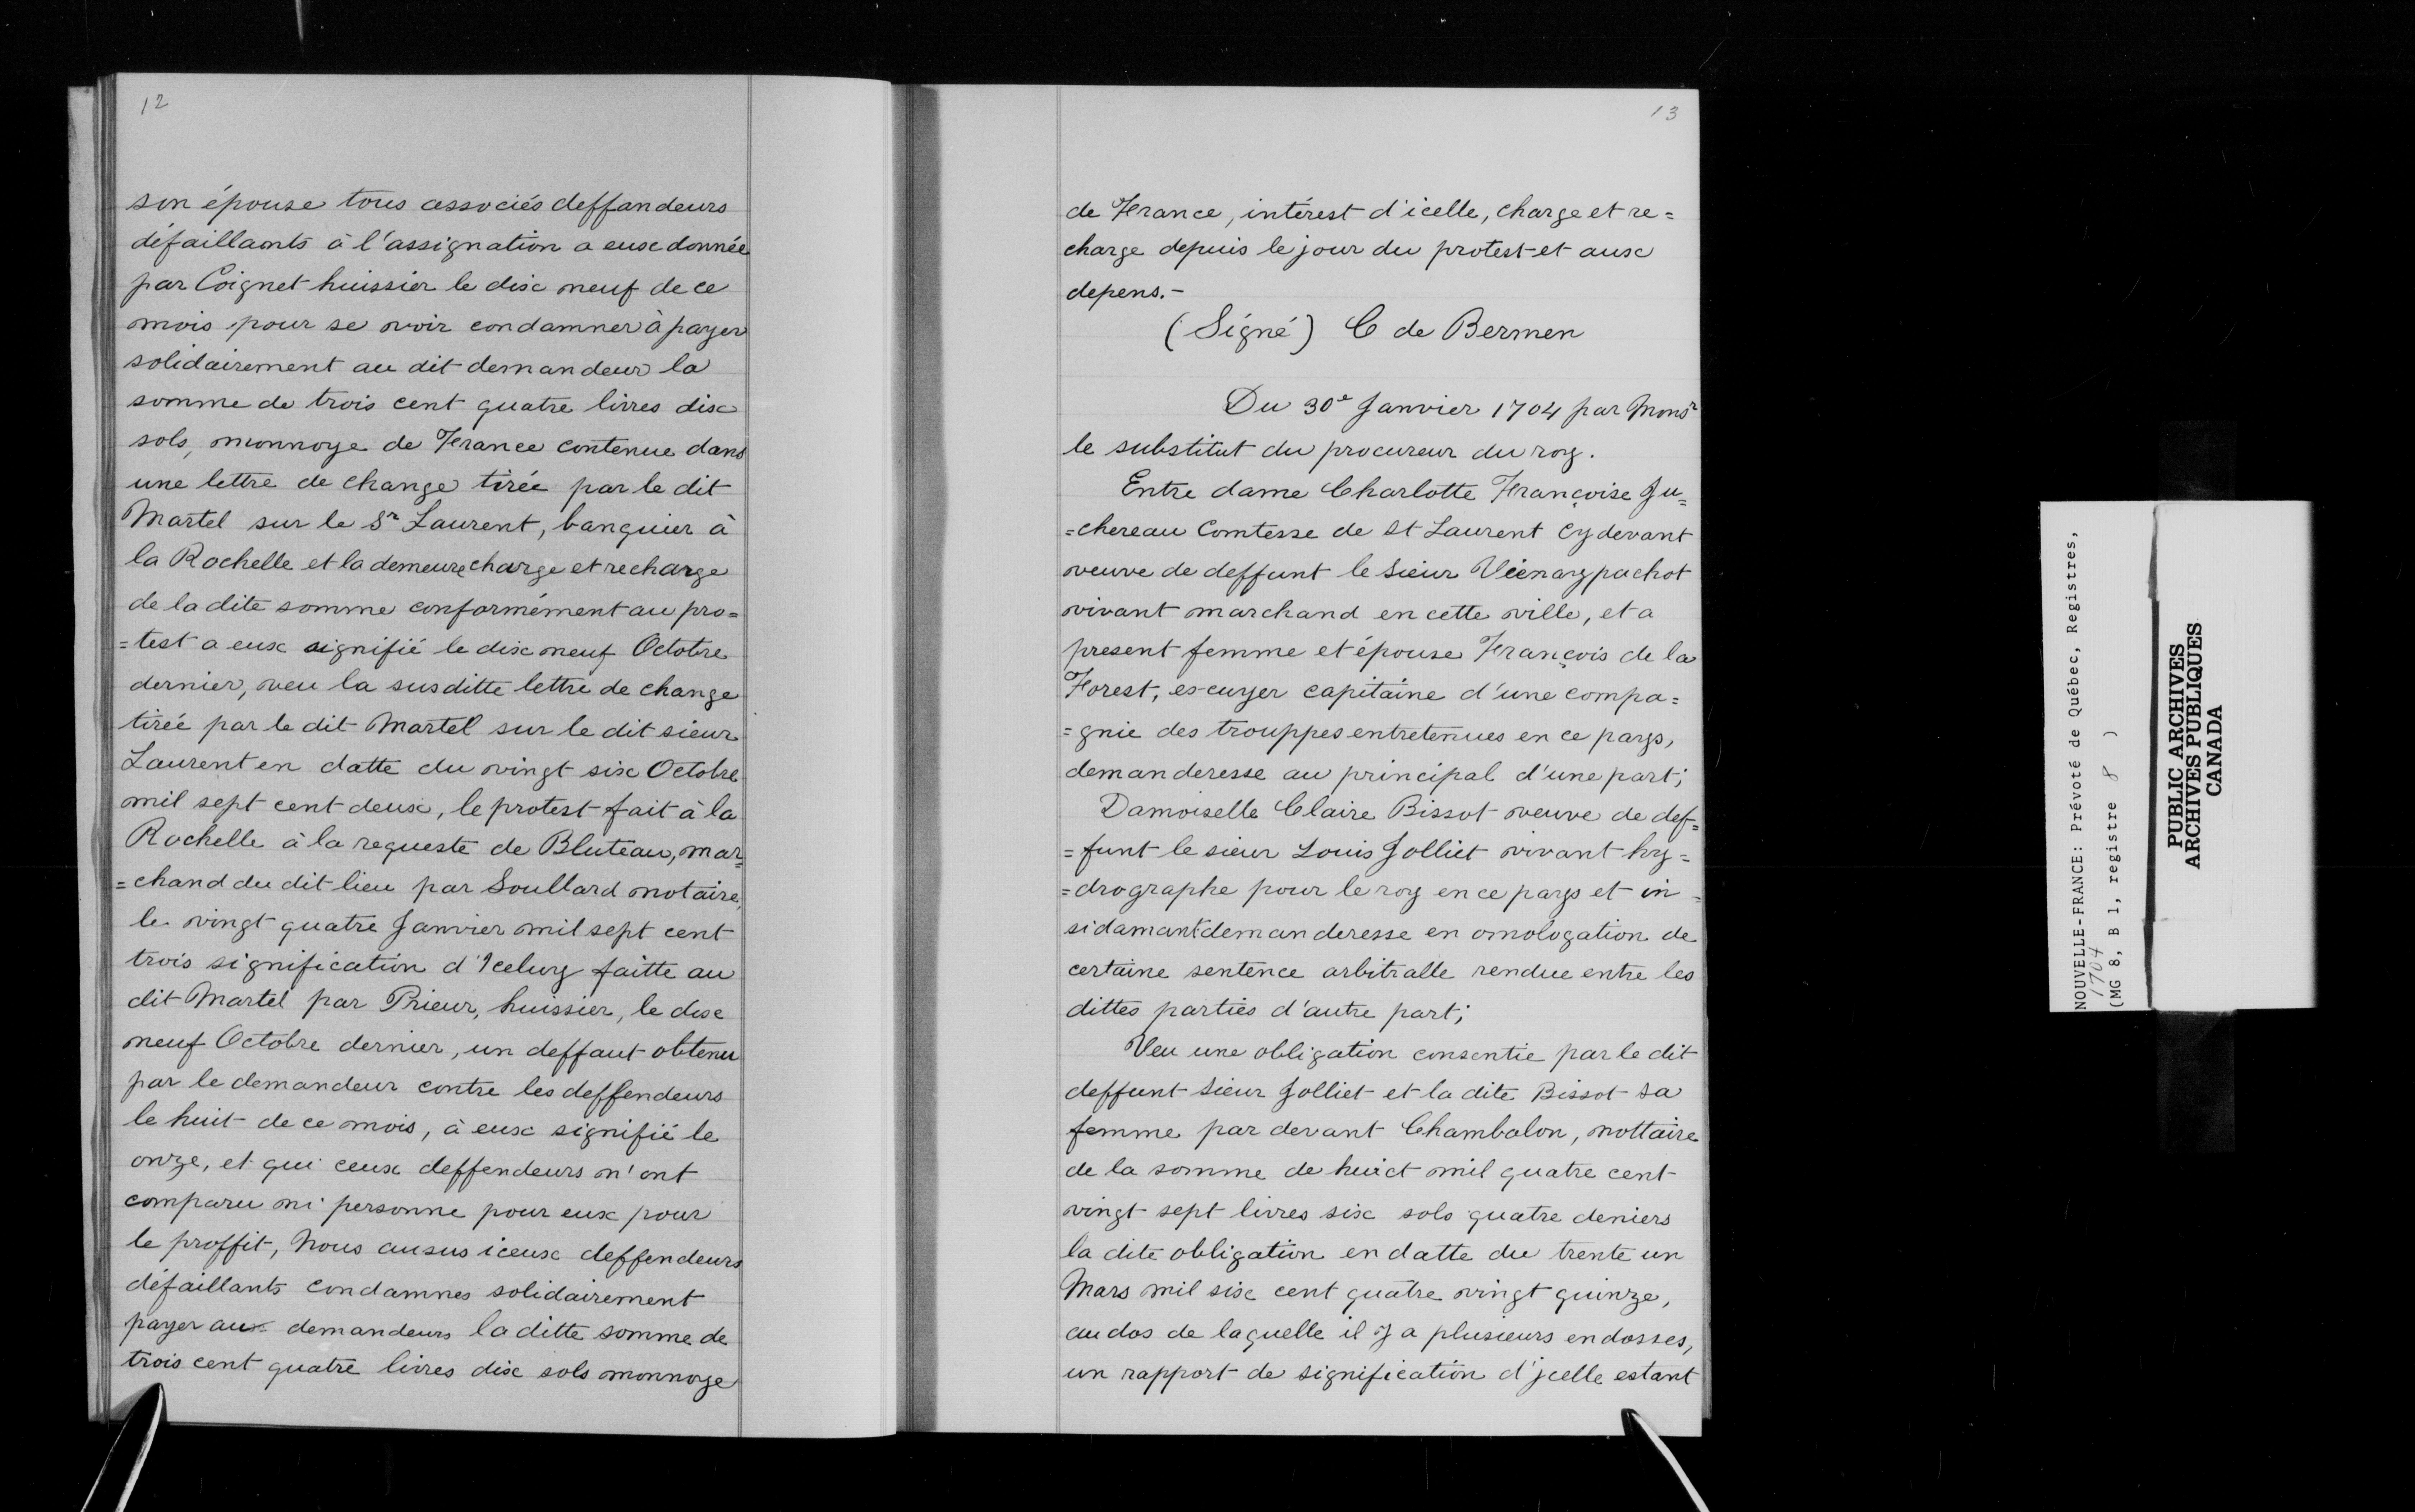 12
son épouse tous associés deffandeurs
défaillants à l'assignation a eux donnée
par Coignet huissier le dix neuf de ce
mois pour se voir condamner à payer
solidairement au dit demandeur la
somme de trois cent quatre livres dix
sols, monnoye de France contenue dans
une lettre de change tirée par le dit
Martel sur le Sr Laurent, banquier à
la Rochelle et la demeure charge et recharge
de la dite somme conformément au pro=
=test a eux signifié le dix neuf Octobre
dernier, veu la susditte lettre de change
tirée par le dit Martel sur le dit sieur
Laurent en datte du vingt six Octobre
mil sept cent deux, le protest fait à la
Rochelle à la requeste de Bluteau, mar=
=chand du dit lieu par Soullard notaire,
le vingt quatre Janvier mil sept cent
trois signification d'Iceluy faitte au
dit Martel par Prieur, huissier, le dix
neuf Octobre dernier, un deffaut obtenu
par le demandeur contre les deffendeurs
le huit de ce mois, à eux signifié le
onze, et qui ceux deffendeurs n'ont
comparu ni personne pour eux pour
le proffit, Nous ausus iceux deffendeurs
défaillants condamnes solidairement
payer aux demandeurs la ditte somme de
trois cent quatre livres dix sols monnoye
13
de France, intérest d'icelle, charge et re=
charge depuis le jour du protest et aux
depens.-
(Signé) C de Bermen
Du 30e Janvier 1704 par Monsr
le substitut du procureur du roy.
Entre dame Charlotte Françoise Ju=
=chereau Comtesse de St Laurent cy devant
veuve de deffunt le sieur Vienaypachot
vivant marchand en cette ville, et a
present femme et épouse François de la
Forest, escuyer capitaine d'une compa=
=gnie des trouppes entretenues en ce pays,
demanderesse au principal d'une part;
Damoiselle Claire Bissot veuve de def=
=funt le sieur Louis Jolliet vivant hy=
=drographe pour le roy en ce pays et in=
sidamant demanderesse en omologation de
certaine sentence arbitralle rendue entre les
dittes parties d'autre part;
Veu une obligation consentie par le dit
deffunt sieur Jolliet et la dite Bissot sa
femme par devant Chambalon, nottaire
de la somme de huict mil quatre cent
vingt sept livres six sols quatre deniers
la dite obligation en datte du trente un
Mars mil six cent quatre vingt quinze,
au dos de laquelle il y a plusieurs endosses,
un rapport de signification d'jcelle estant
NOUVELLE-FRANCE: Prévoté de Québec, Registres,
1704
(MG 8, B 1, registre 8 )
PUBLIC ARCHIVES
ARCHIVES PUBLIQUES
CANADA